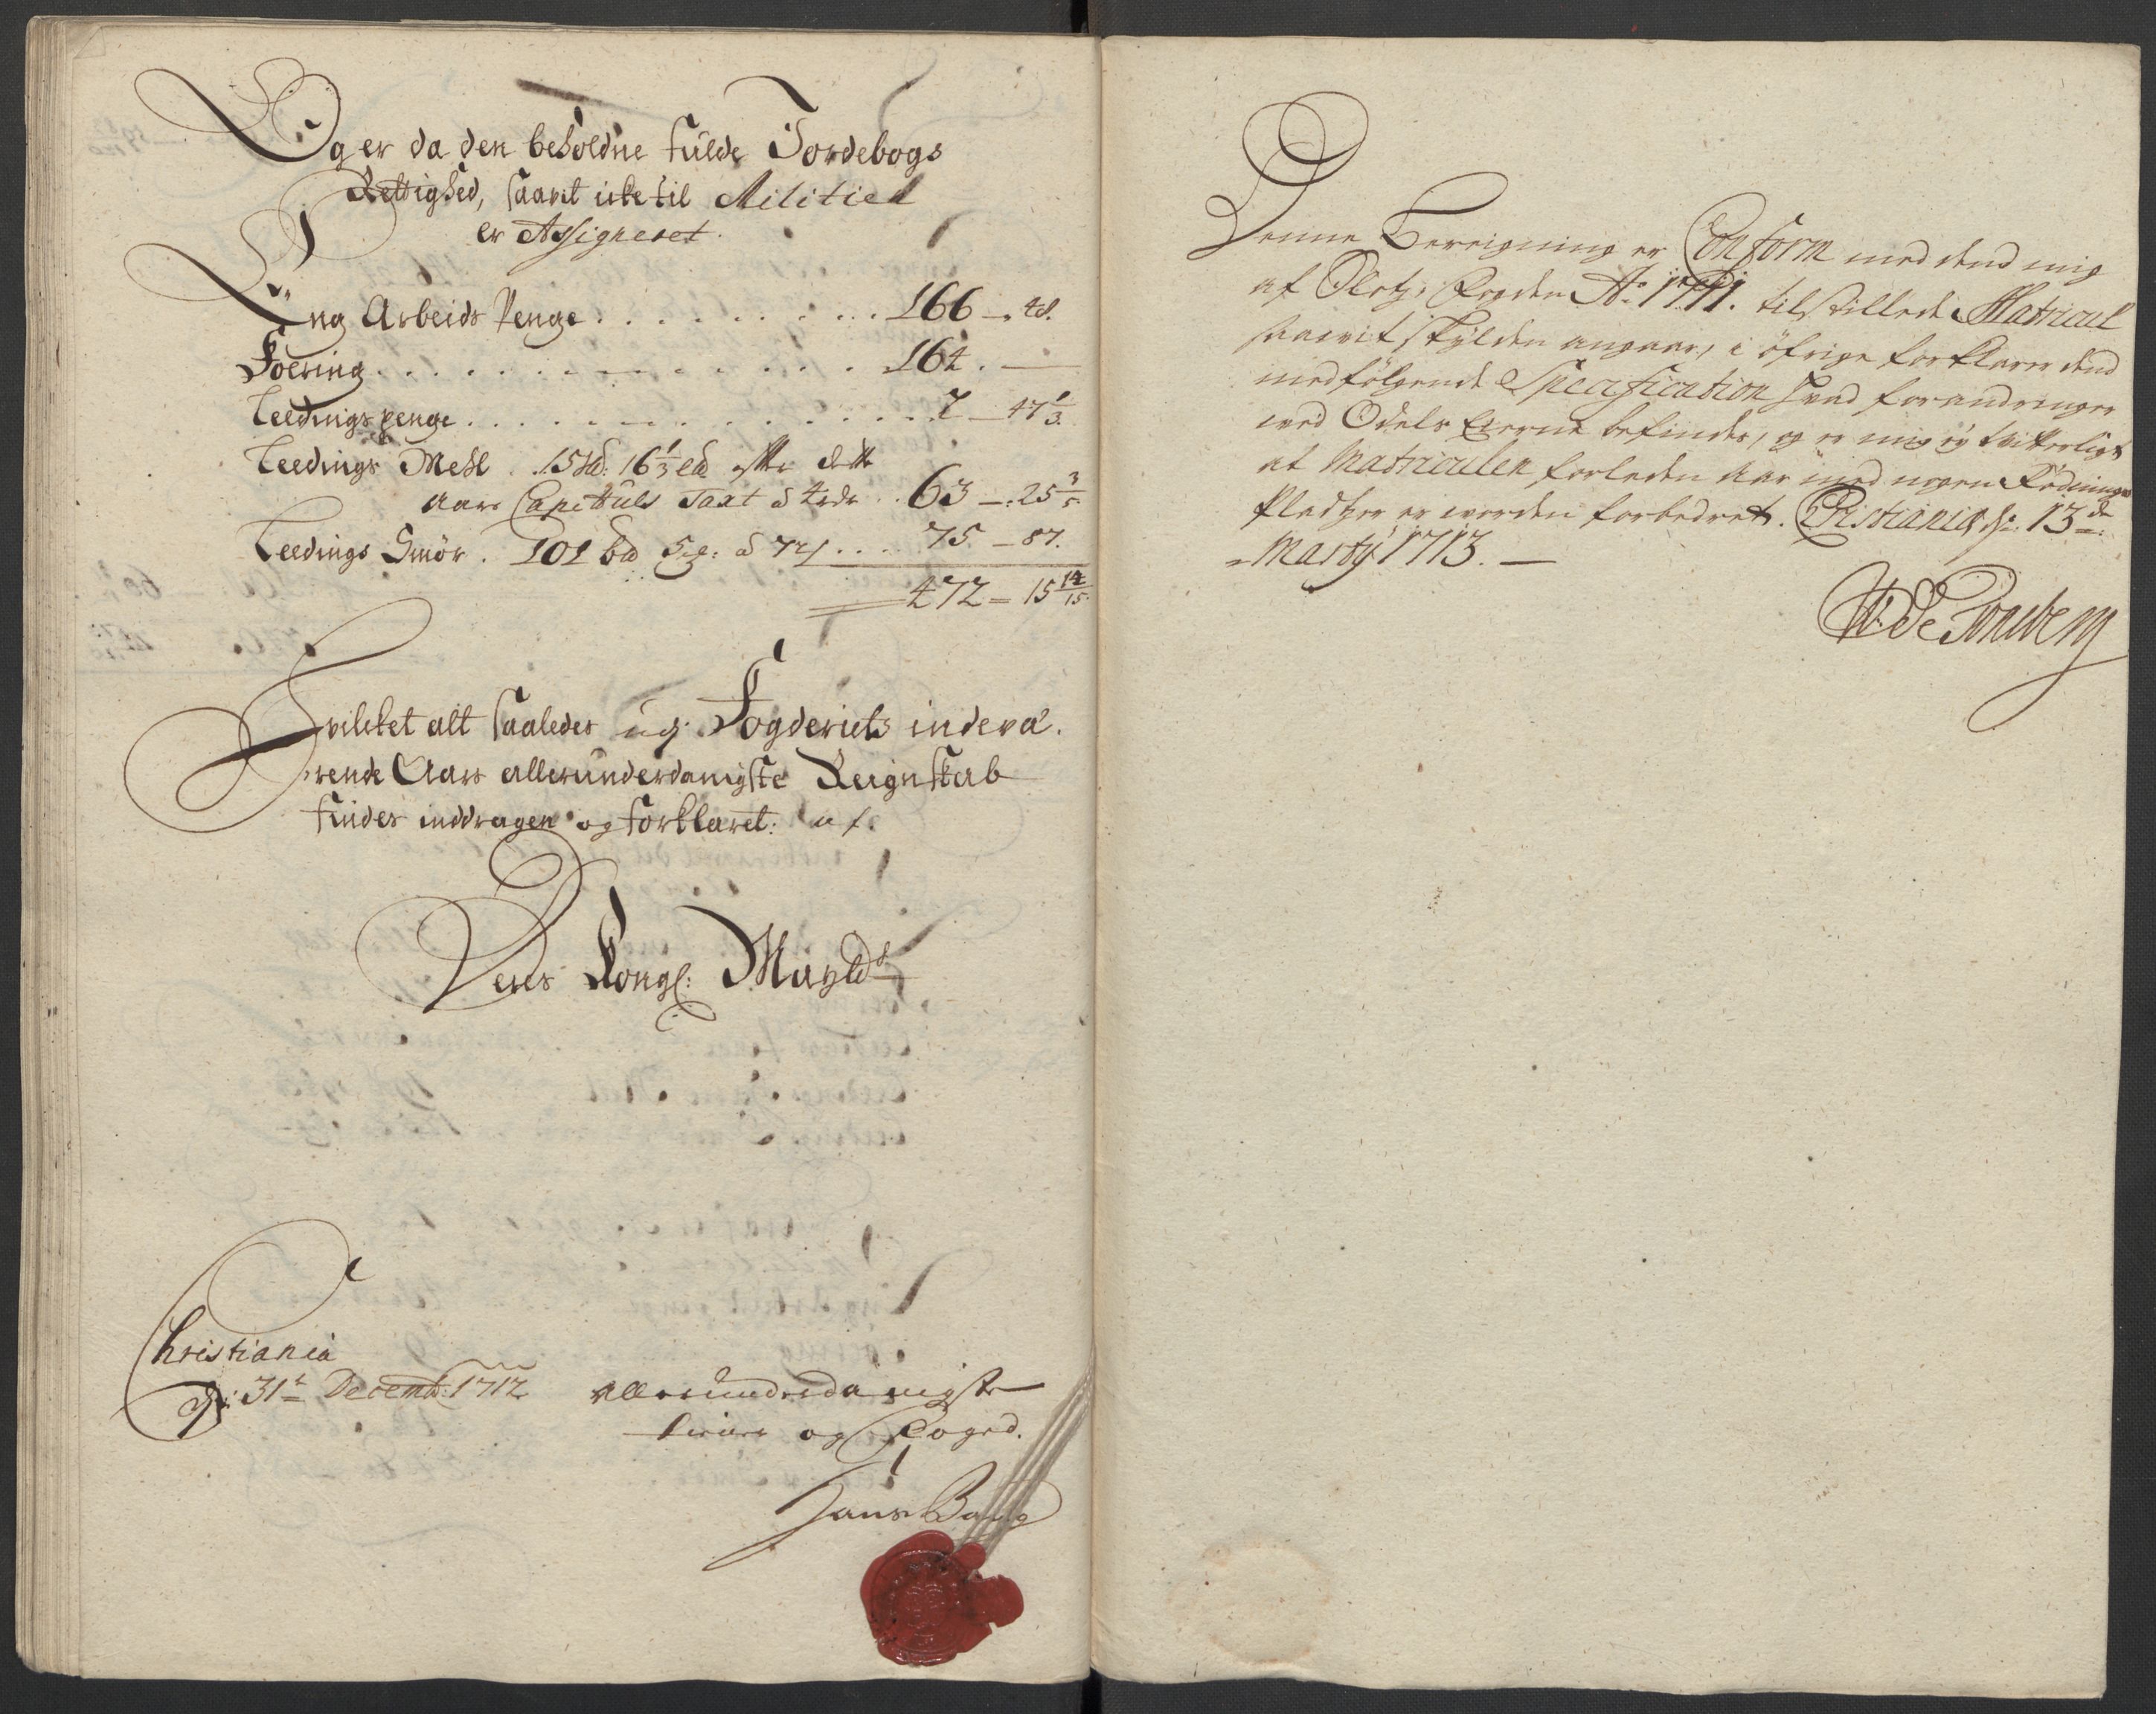 Og er da den beholdne fulde Jordebogs
Rettighed, saavit icke til Militien
er Assigneret.
Eng Arbeids Penge . . . . . . . . . 166 – „ 48.
Foering . . . . . . . . . . . . . . 164. —
Leedings penge . . . . . . . . . . . 7 – 47 1/3.
Leedings Mehl . 15 16 1/3 efter dette
Aars Capittuls Taxt à 4 rdr . . 63 –: 25 3/5
Leedings Smör . 101 à 72 s . . . 75 – 87.
472 – 15 14/15.
Hvilcket alt saaledes udj Fogderiets indevæ-
rende Aars allerunderdanigste Reignskab
findes inddragen og forklaret: af
Deres Kongl: Mayts
Christiania
dn: 31te Decemb: 1712
allerunderdanigste
tiener og Foged.
Hans Bang
Denne Bereigning er Conform med dend mig
af Fogden Ao. 1711. tilstillede Matricul
saavit skylden angaar, i öfrige forklarer dend
medfölgende Specification hvad forandringer
ved Odels Eierne befindes, og er mig ey vitterligt
at Matriculen forleden aar med nogen Rödnings
Pladtzer er worden forbedret. Christiania dn. 13de
Marty 1713. —